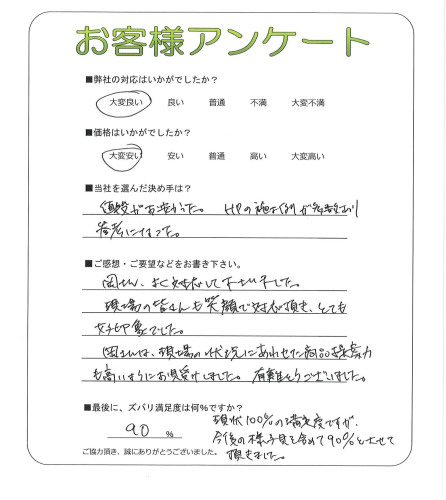 お客様アンケート
■弊社の対応はいかがでしたか？
大変良い 良い 普通 不満 大変不満
■価格はいかがでしたか？
大変安い 安い 普通 高い 大変高い
■当社を選んだ決め手は？
値段がお安かった。 HPの施工例が多数あり
参考になった。
■ご感想・ご要望などをお書き下さい。
岡さん、よく対応して下さいました。
現場の皆さんも笑顔で対応頂き、とても
好印象でした。
岡さんは、現場の状況にあわせた商品提案力
も高いようにお見受けしました。有難とうございました。
■最後に、ズバリ満足度は何％ですか？
90 %
現状100%の満足度ですが、
今後の様子見を含めて90%とさせて
頂きました。
ご協力頂き、誠にありがとうございました。